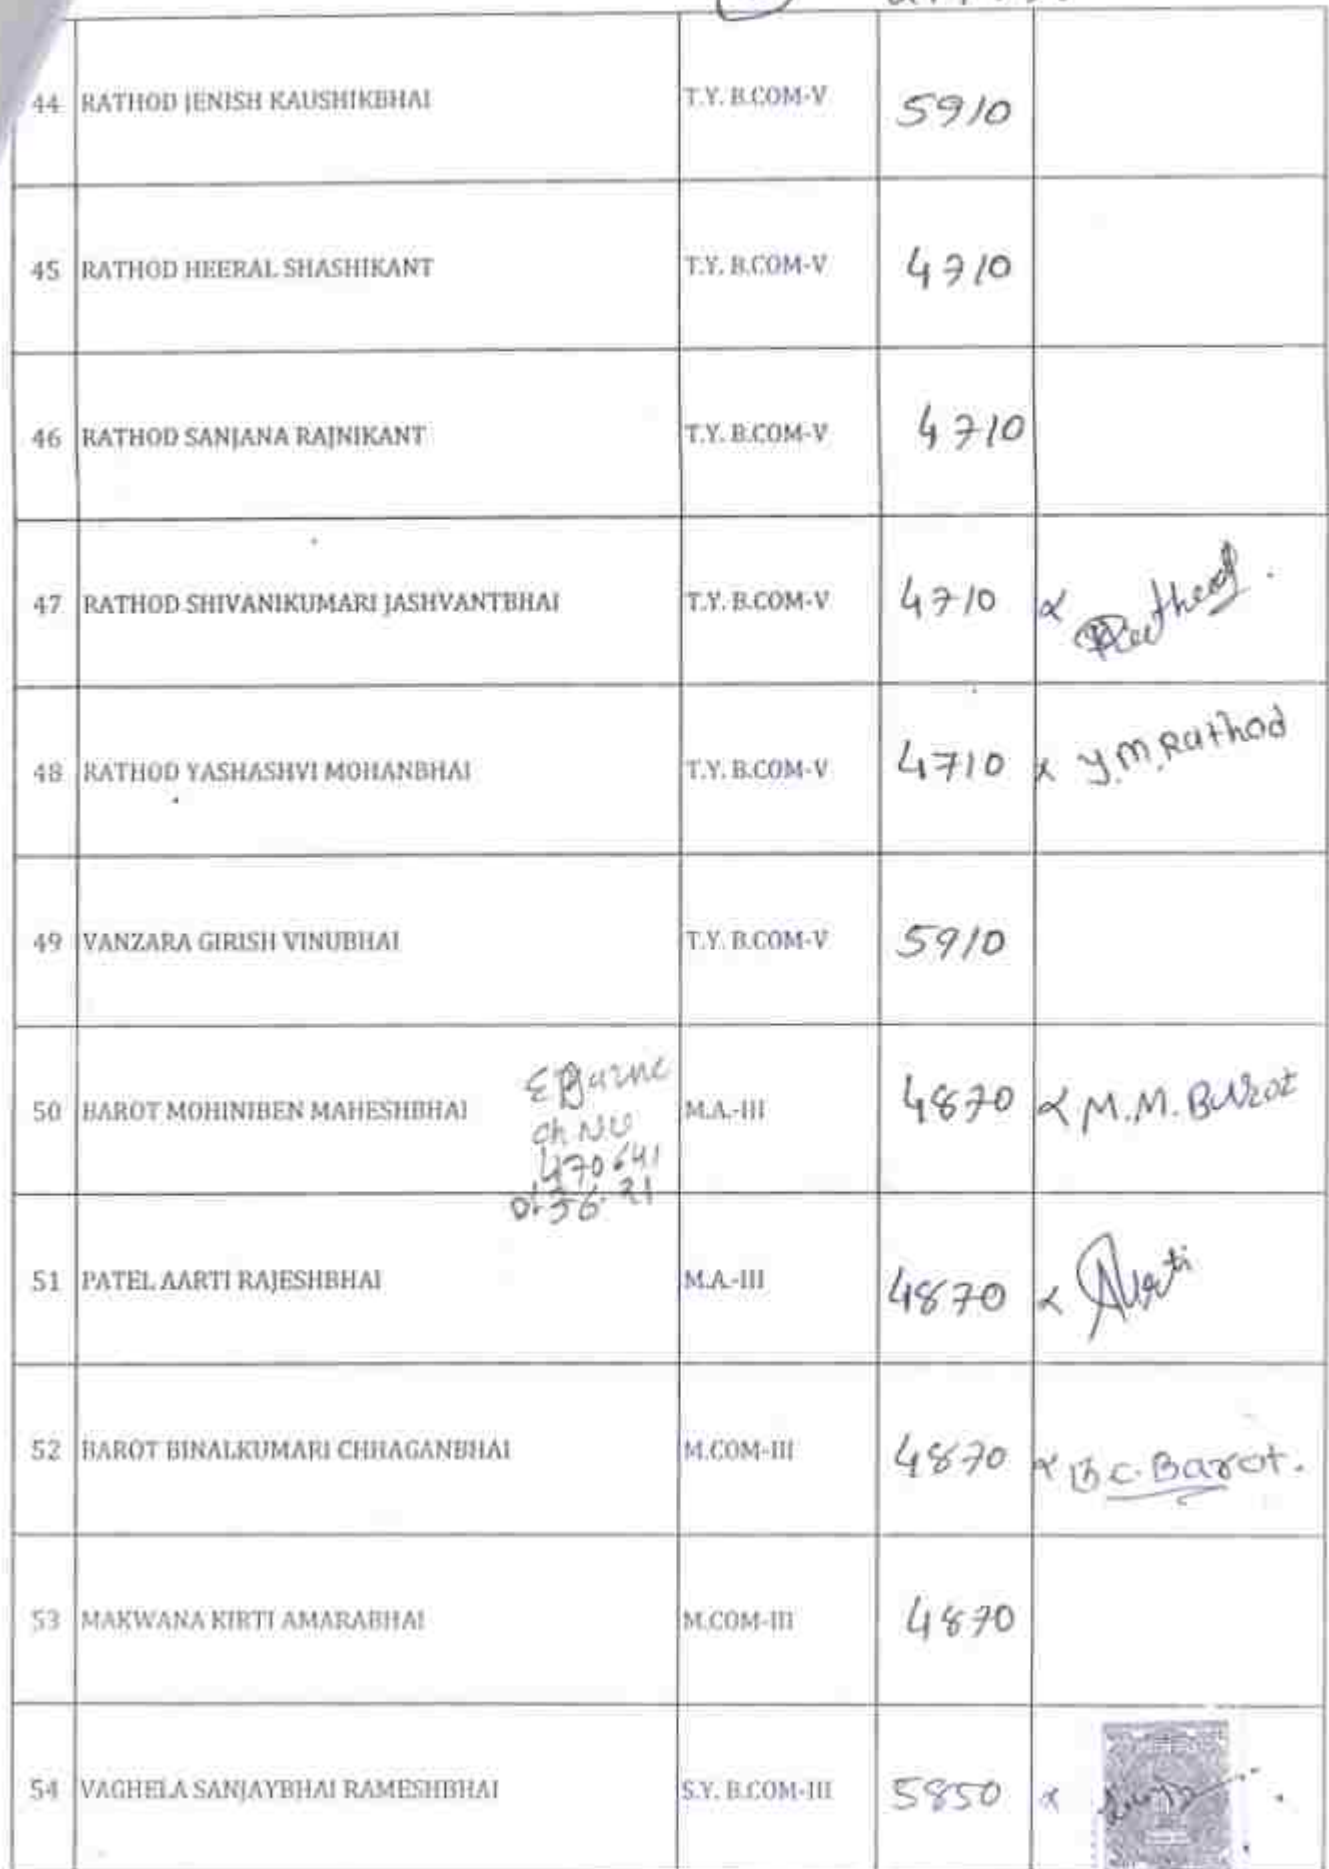 44 RATHOD JENISH KAUSHIKBHAI T.Y. B.COM-V 5910
45 RATHOD HEERAL SHASHIKANT T.Y. B.COM-V 4710
46 RATHOD SANJANA RAJNIKANT T.Y. B.COM-V 4710
47 RATHOD SHIVANIKUMARI JASHVANTBHAI T.Y. B.COM-V 4710 Rathod.
48 RATHOD YASHASHVI MOHANBHAI T.Y. B.COM-V 4710 x Y.M.Rathod
49 VANZARA GIRISH VINUBHAI T.Y. B.COM-V 5910
50 BAROT MOHINIBEN MAHESHBHAI M.A.-III 4870 M.M.Barot
470641
51 PATEL AARTI RAJESHBHAI M.A.-III 4870 Aarti
52 BAROT BINALKUMARI CHHAGANBHAI M.COM-III 4870 B.C.Barot.
53 MAKWANA KIRTI AMARABHAI M.COM-III 4870
54 VAGHELA SANJAYBHAI RAMESHBHAI S.Y. B.COM-III 5850